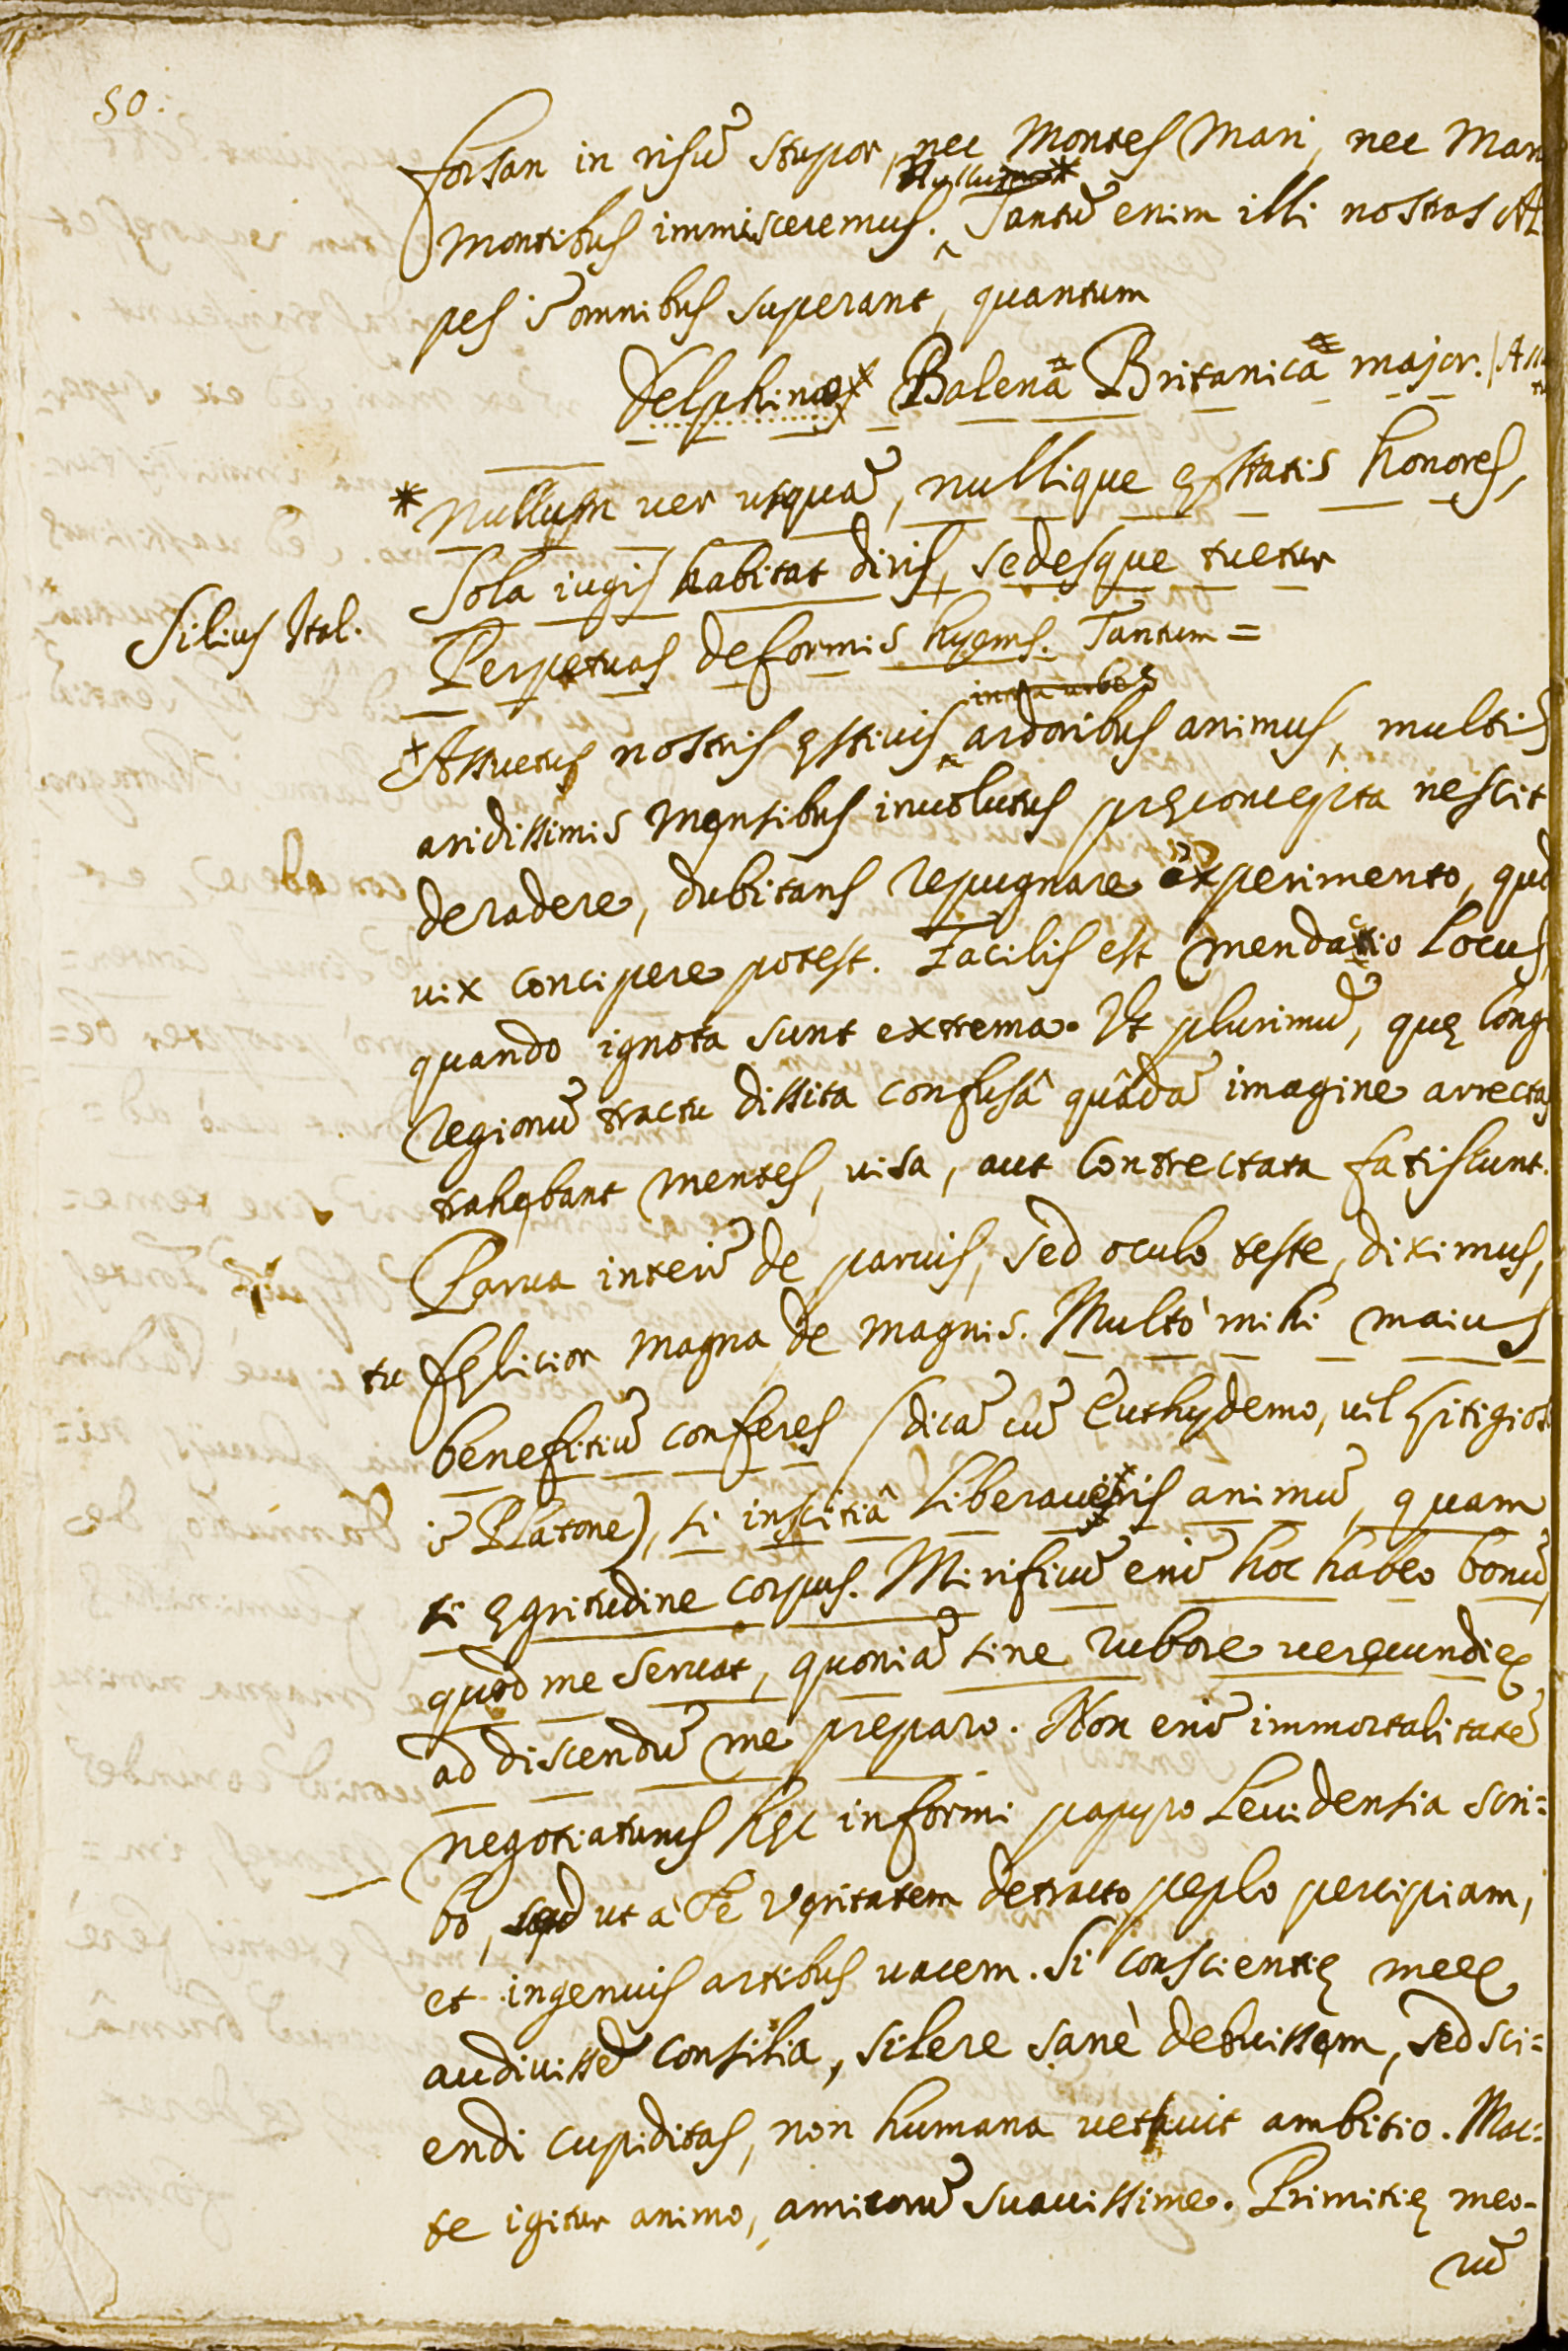 50.
forsan in risũ stupor, nec Montes Mari, nec Mari
Nullum *
montibus immisceremus. ^ Tantũ enim illi nostras Al
pes ĩ omnibus superant, quantum
Delphinos Balenã Britanicã major. / Assu
* Nullum ver usquã, nullique ęstatis honores,
Sola iugis habitat diris, sedesque tuetur
Silius Ital.
Perpetuas deformis hyems. Tantum =
+ Assuetus nostris ęstiuis ^ ardoribus animus, multis
aridissimis mensibus inuolutus pręconcepta nescit
deradere, dubitans repugnare experimento, quod
uix concipere potest. Facilis est mendacio locus,
quando ignota sunt extrema. Vt plurimũ, quę longo
regionũ tractu dissita confusâ quâdã imagine arrectas
trahebant mentes, uisa, aut contrectata fatiscunt.
Parua interĩ de paruis, sed oculo teste, diximus,
tu fęlicior magna de magnis. Multò mihi maius
benefitiũ conferes (dicã cũ Euthydemo, uel Litigioso
ĩ Platone), si inscitiâ liberaueris animũ, quam
si ęgritudine corpus. Mirificũ enĩ hoc habeo bonũ,
quod me seruat, quoniã sine rubore uerecundię
ad discendũ me preparo. Non enĩ immortalitatẽ
negotiaturus hęc informi papyro leuidensia scri=
bo, sed ut à Te veritatem detracto peplo percipiam,
et ingenuis artibus uacem. Si conscientię meę
audiuissẽ consilia, silere sanè debuissem, sed sci=
endi cupiditas, non humana uetuit ambitio. Mac=
te igitur animo, amicorũ suauissime. Primitię meo-
rũ